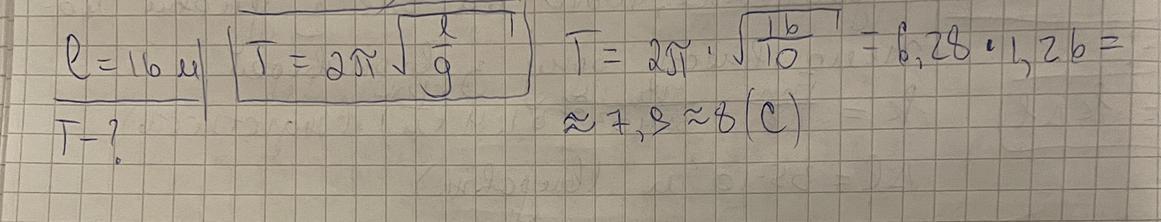 l = 16 м T = 2π √(l/g) T = 2π · √(16/10) = 6,28 · 1,26 =
T - ? ≈ 7,9 ≈ 8 (с)